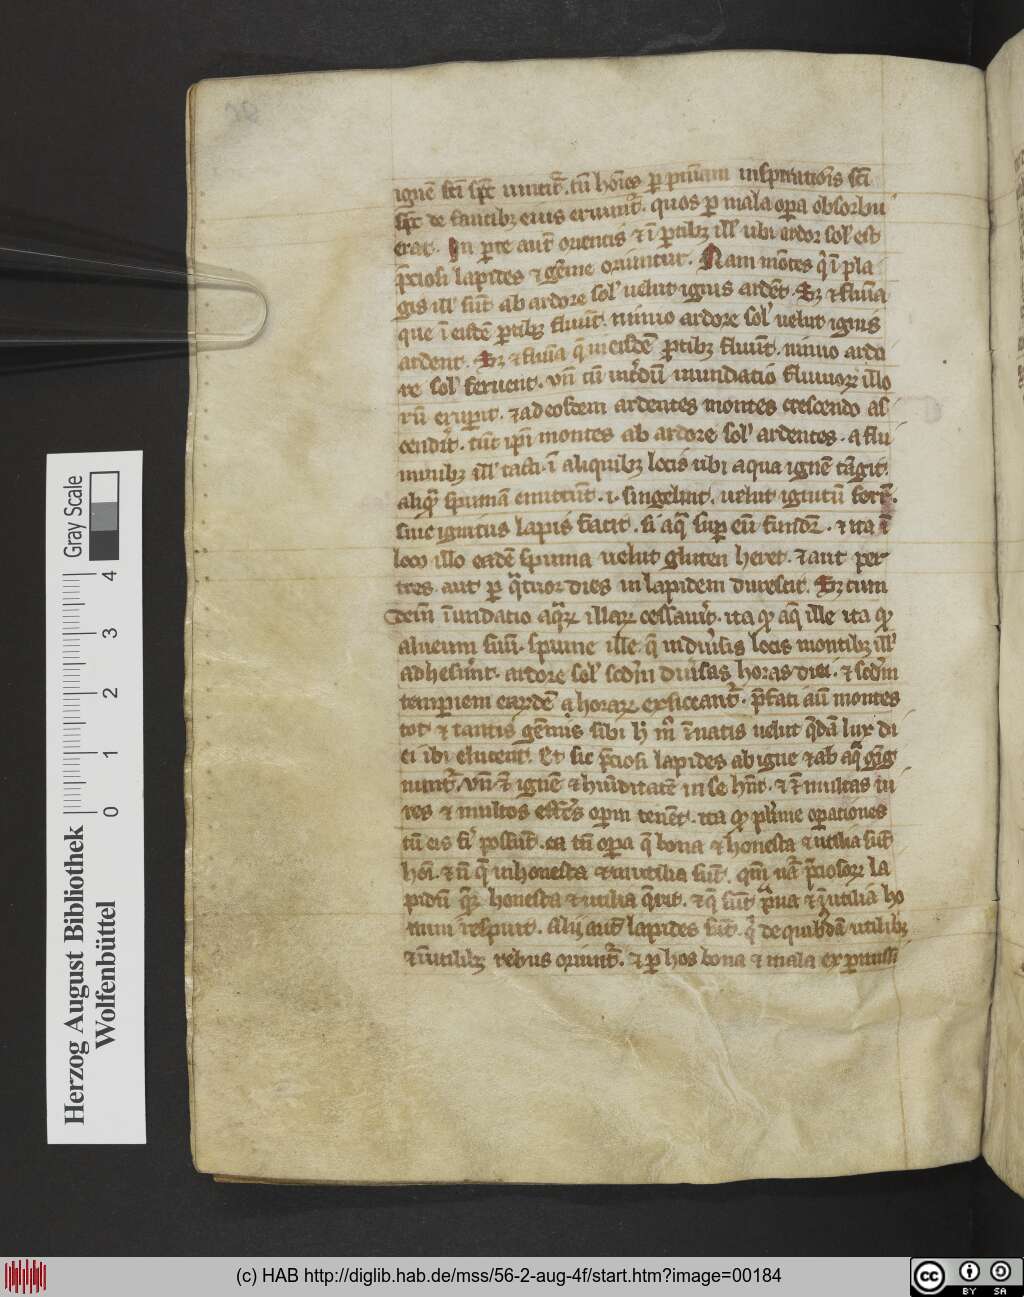 ignē sc̄i sp̄c mittit̄. tū hōies ꝑ pͥmam inspirationis sc̄i
sp̄c de faucibꝫ eius eruunt̄. quos ꝑ mala oꝑa obsorbu
erat. In ꝑte aut̄ orientis ⁊ ī ꝑtibꝫ ill' ubi ardor sol' est
p̄ciosi lapides ⁊ gēme oriuntur. Nam mōtes qͥ ī pla
gis ill' sūt ab ardore sol' uelut ignis ardēt. Sꝫ ⁊ flumī̄a
que ī eisdē ꝑtibꝫ fluūt. nimio ardore sol' uelut ignis
ardent. Sꝫ ⁊ flumīa q̄ in eisdē ꝑtibꝫ fluūt. nimio ardo
re sol' feruent. vn̄ cū int̄dū inundatio fluuioꝝ illo
rū erūpit. ⁊ ad eosdem ardentes montes crescendo as
cendit. tūc ip̄i montes ab ardore sol' ardentes. a flu
minibꝫ ill' tacti. ī aliquibꝫ locis ubi aqua ignē tāgit.
aliqͣ spumā emittūt. .i. singelint. uelut ignitū ferr̄.
siue ignitus lapis facit. si aq̄ suꝑ eū fundr̄. ⁊ ita ī
loco illo eadē spuma uelut gluten heret. ⁊ aut per
tres. aut ꝑ qͣtuor dies in lapidem durescit. Sꝫ cum
dein̄ īundatio aqͣꝝ illaꝝ cessauit. ita qͦ aq̄ ille ita qͦ
alueum suū. spume ille. q̄ in diuͥsis locis montibꝫ ill'
adheserͥnt. ardore sol' scd̄m diuͥsas horas diei. ⁊ scd̄m
temꝑiem earūdē horarꝝ exsiccant̄. p̄fati aū montes
tot. ⁊ tantis gēmis sibi ī̄natis uelut qͣdā lux di
ei ibi elucent. Et sic p̄ciosi lapides ab igne ⁊ ab aqͣ gig
nunt̄. vn̄ ⁊ ignē ⁊ hūiditatē in se hn̄t. ⁊ multas ui
res ⁊ multos effc̄s opm̄ tenēt. ita qͦ plͥme oꝑationes
cū eis fi' possūt. ea tn̄ oꝑa q̄ bona ⁊ honesta ⁊ utilia sūt
hōi. ⁊ n̄ q̄ inhonesta ⁊ inutilia sūt. qm̄ nāͣ p̄ciosoꝝ la
pidū qͥꝫ honesta ⁊ utilia q̄rit. ⁊ q̄ sūt pͣua ⁊ īutilia ho
mini respuit. Alij aut̄ lapides sūt. qͥ de quibꝫdā utilibꝫ
⁊ īutilibꝫ rebus oriunt̄. ⁊ ꝑ hos bona ⁊ mala ex ꝑmissi
Herzog August Bibliothek
Wolfenbüttel
0 1 2 3 4
Gray Scale
(c) HAB http://diglib.hab.de/mss/56-2-aug-4f/start.htm?image=00184
cc BY SA